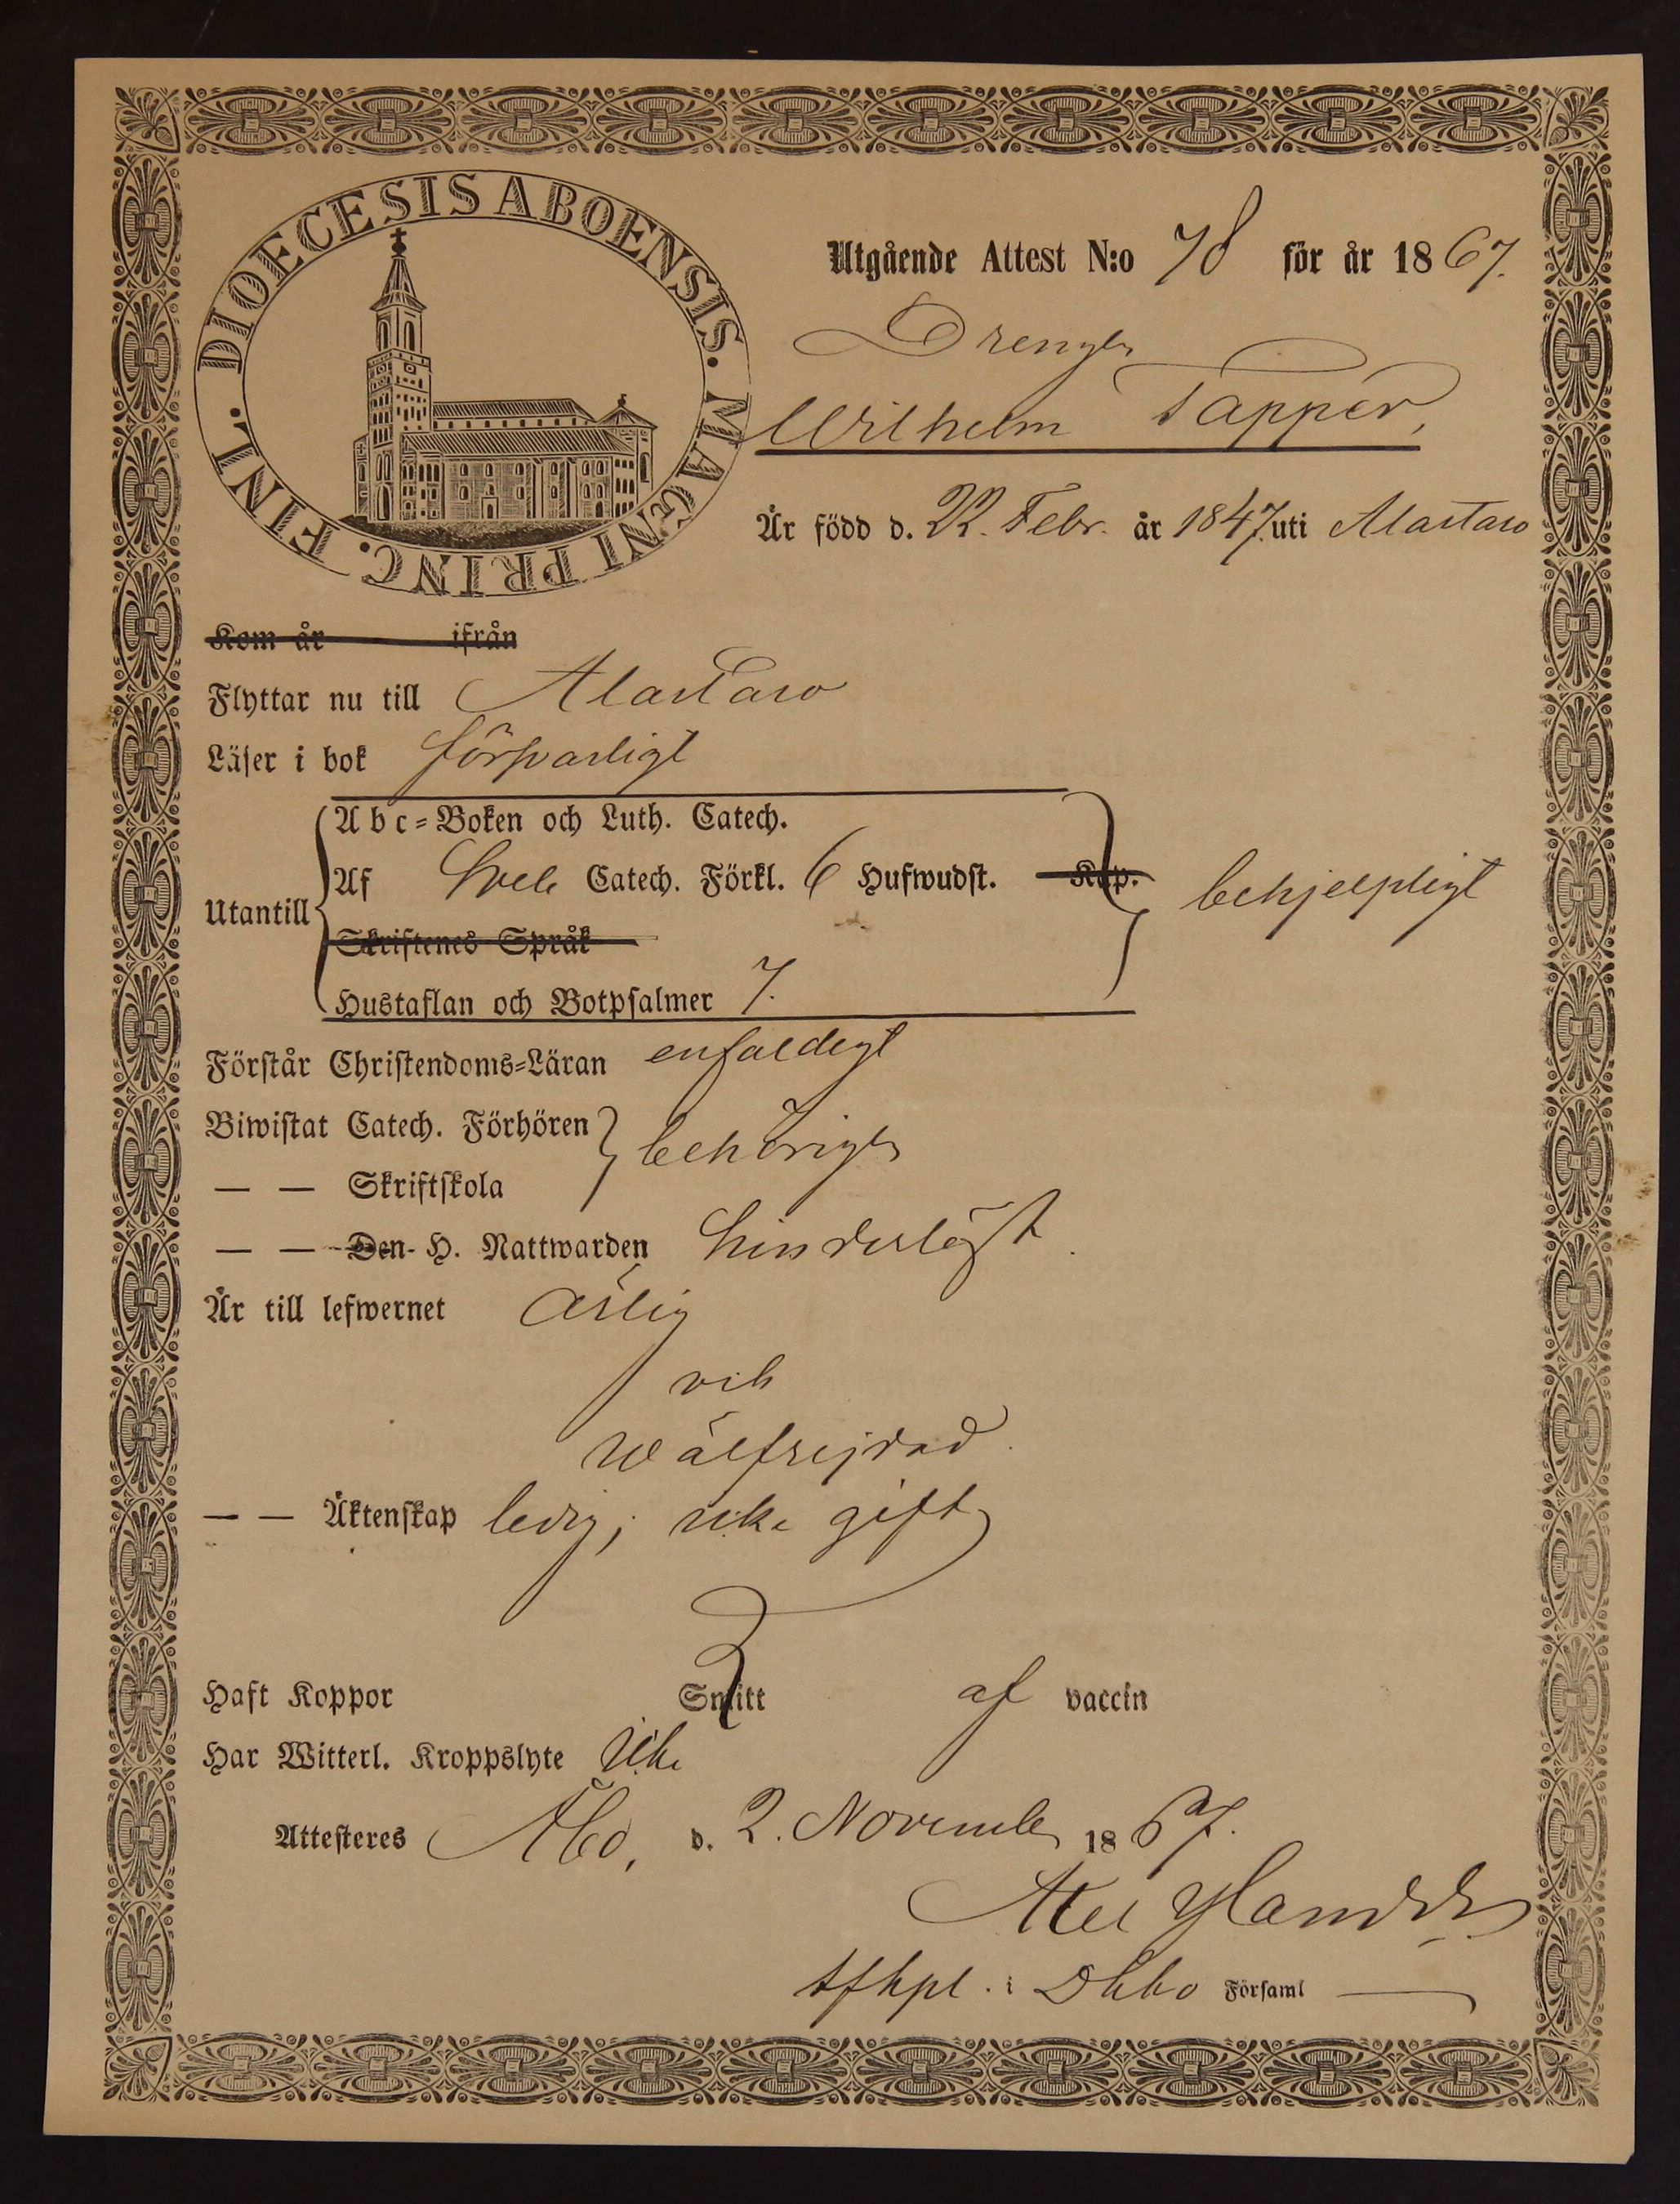 DIOECESIS ABOENSIS. MAGNI PRINC. FINL.
Utgående Attest N:o 78 för år 1867.
Drengen
Wilhelm Tapper,
Är född d. 22. Febr. år 1847. uti Alastaro
Kom år ifrån
Flyttar nu till Alastaro
Läser i bok försvarligt
Utantill
Abc-Boken och Luth. Catech.
Af Sveb. Catech. Förkl. 6 Hufwudst. Kap.
behjelpligt
Skriftenes Språk
Hustaflan och Botpsalmer 7.
Förstår Christendoms-Läran enfaldigt
Biwistat Catech. Förhören
behörigen
— — Skriftskola
— — Den H. Nattwarden hinderlöst.
Är till lefwernet ärlig
och
wälfrejdad.
— — Äktenskap ledig; icke gift
Haft Koppor Smitt af vaccin
Har Witterl. Kroppslyte icke
Attesteres Åbo, d. 2. November 1867.
Axel
i Församl